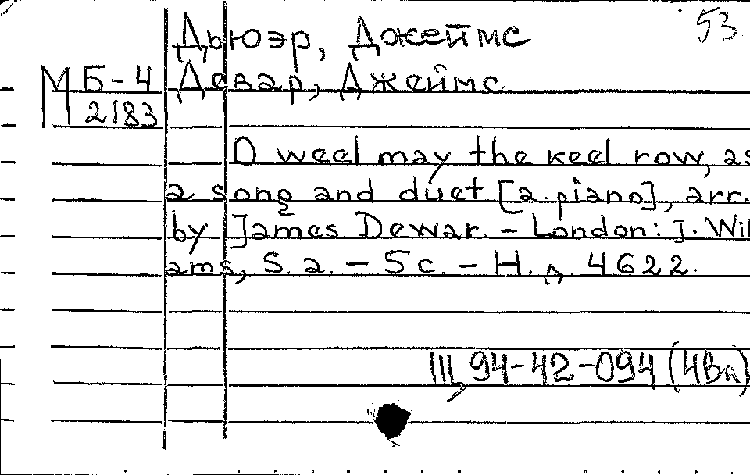 53
Дьюэр, Джеймс
М Б-4 Девар, Джеймс
2183
O weel may the keel row, as
a song and duet [a. piano], arr.
by James Dewar. – London: J. Wil
ams, S. a. – 5 c. – Н. д. 4622.
94-42-094 (4вл)